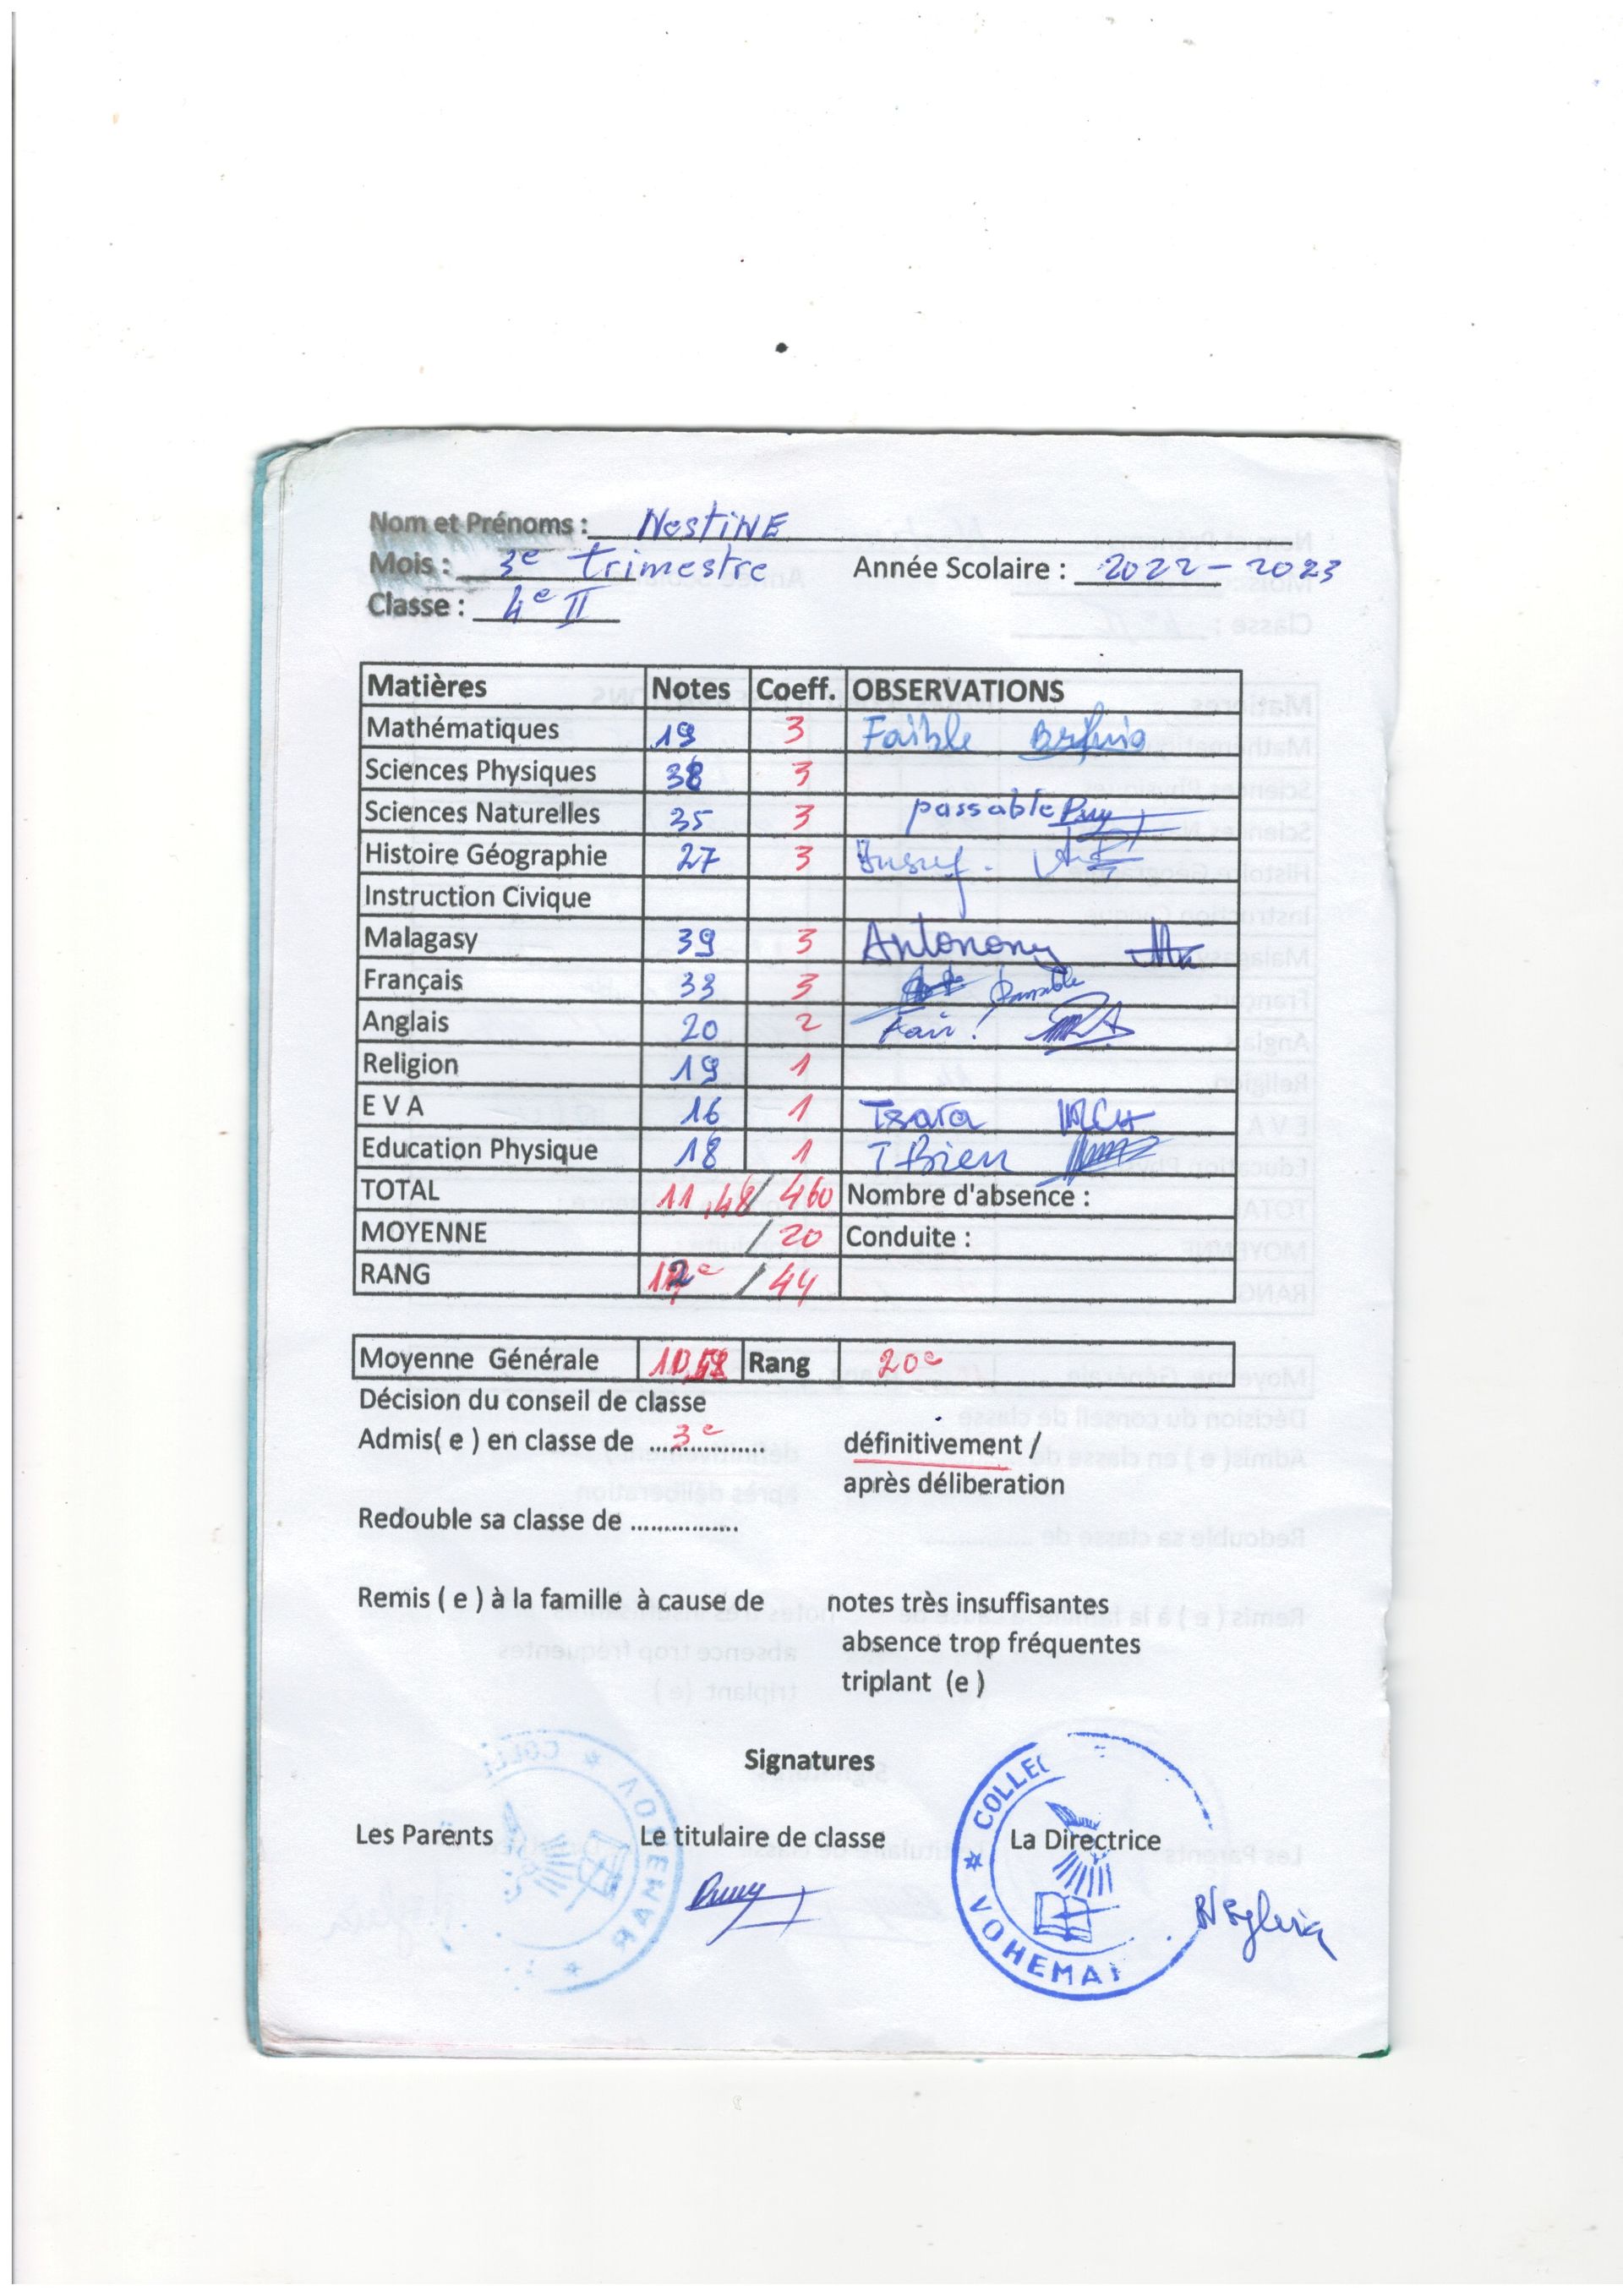 Nom et Prénoms : NestiNE
Mois : 3e trimestre Année Scolaire : 2022 - 2023
Classe : 4e II
Matières Notes Coeff. OBSERVATIONS
Mathématiques 19 3 Faible
Sciences Physiques 38 3
Sciences Naturelles 35 3 passable
Histoire Géographie 27 3 Insuf.
Instruction Civique
Malagasy 39 3 Antonony
Français 33 3 Passable
Anglais 20 2 Fair !
Religion 19 1
E V A 16 1 Tsara
Education Physique 18 1 T Bien
TOTAL 11,48 / 460 Nombre d'absence :
MOYENNE / 20 Conduite :
RANG / 44
Moyenne Générale Rang 20e
Décision du conseil de classe
Admis( e ) en classe de ...3e... définitivement /
après déliberation
Redouble sa classe de ................
Remis ( e ) à la famille à cause de notes très insuffisantes
absence trop fréquentes
triplant (e )
Signatures
Les Parents Le titulaire de classe La Directrice
COLLE
VOHEMA